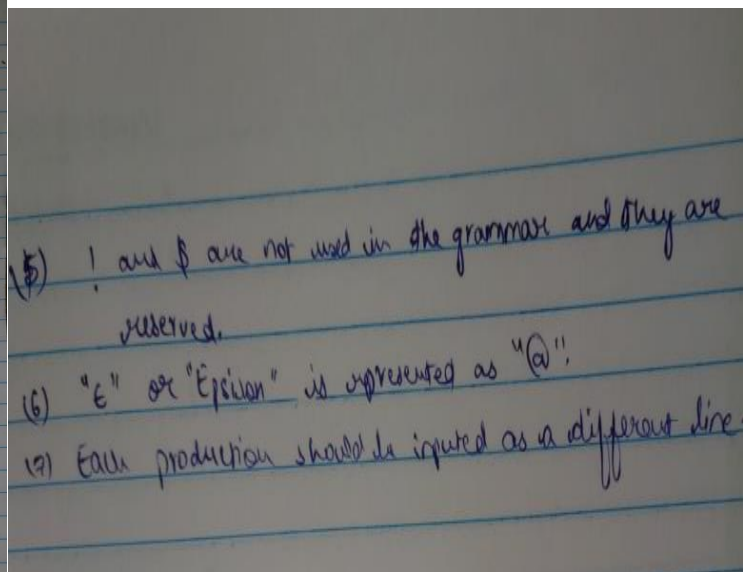 (5) ! and $ are not used in the grammar and they are
reserved.
(6) "ε" or "Epsilon" is represented as "@".
(7) Each production should be inputed as a different line.